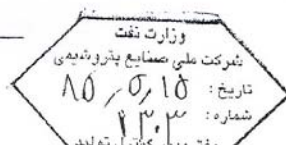 وزارت نفت
شرکت ملی صنایع پتروشیمی
تاریخ: ۸۵/۵/۱۵
شماره: ۲۳۰۳
کنترل تولید